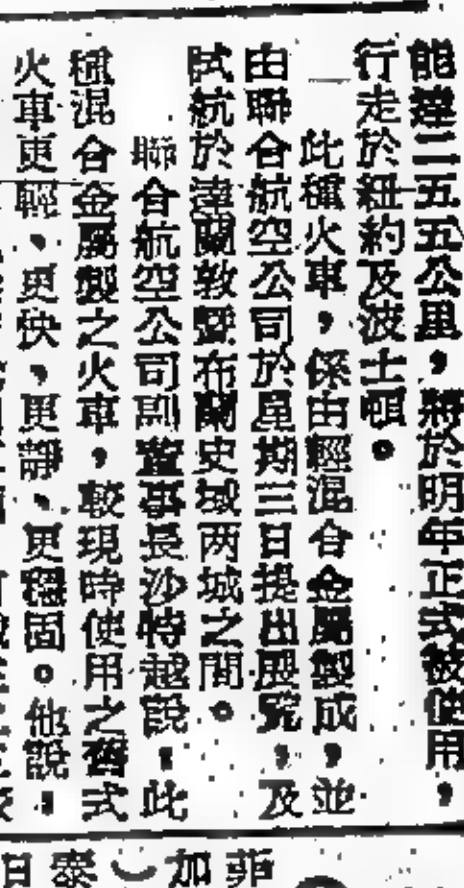 能達二五五公里，將於明年正式被使用，
行走於紐約及波士頓。
此種火車，係由輕混合金屬製成，並
由聯合航空公司於星期三日提出展覽，及
試航於津蘭敦暨布蘭史域两城之間。
聯合航空公司副董事長沙特越說，此
種混合金屬製之火車，較現時使用之舊式
火車更輕、更快、更靜、更穩固。他說，
菲
加
泰
日